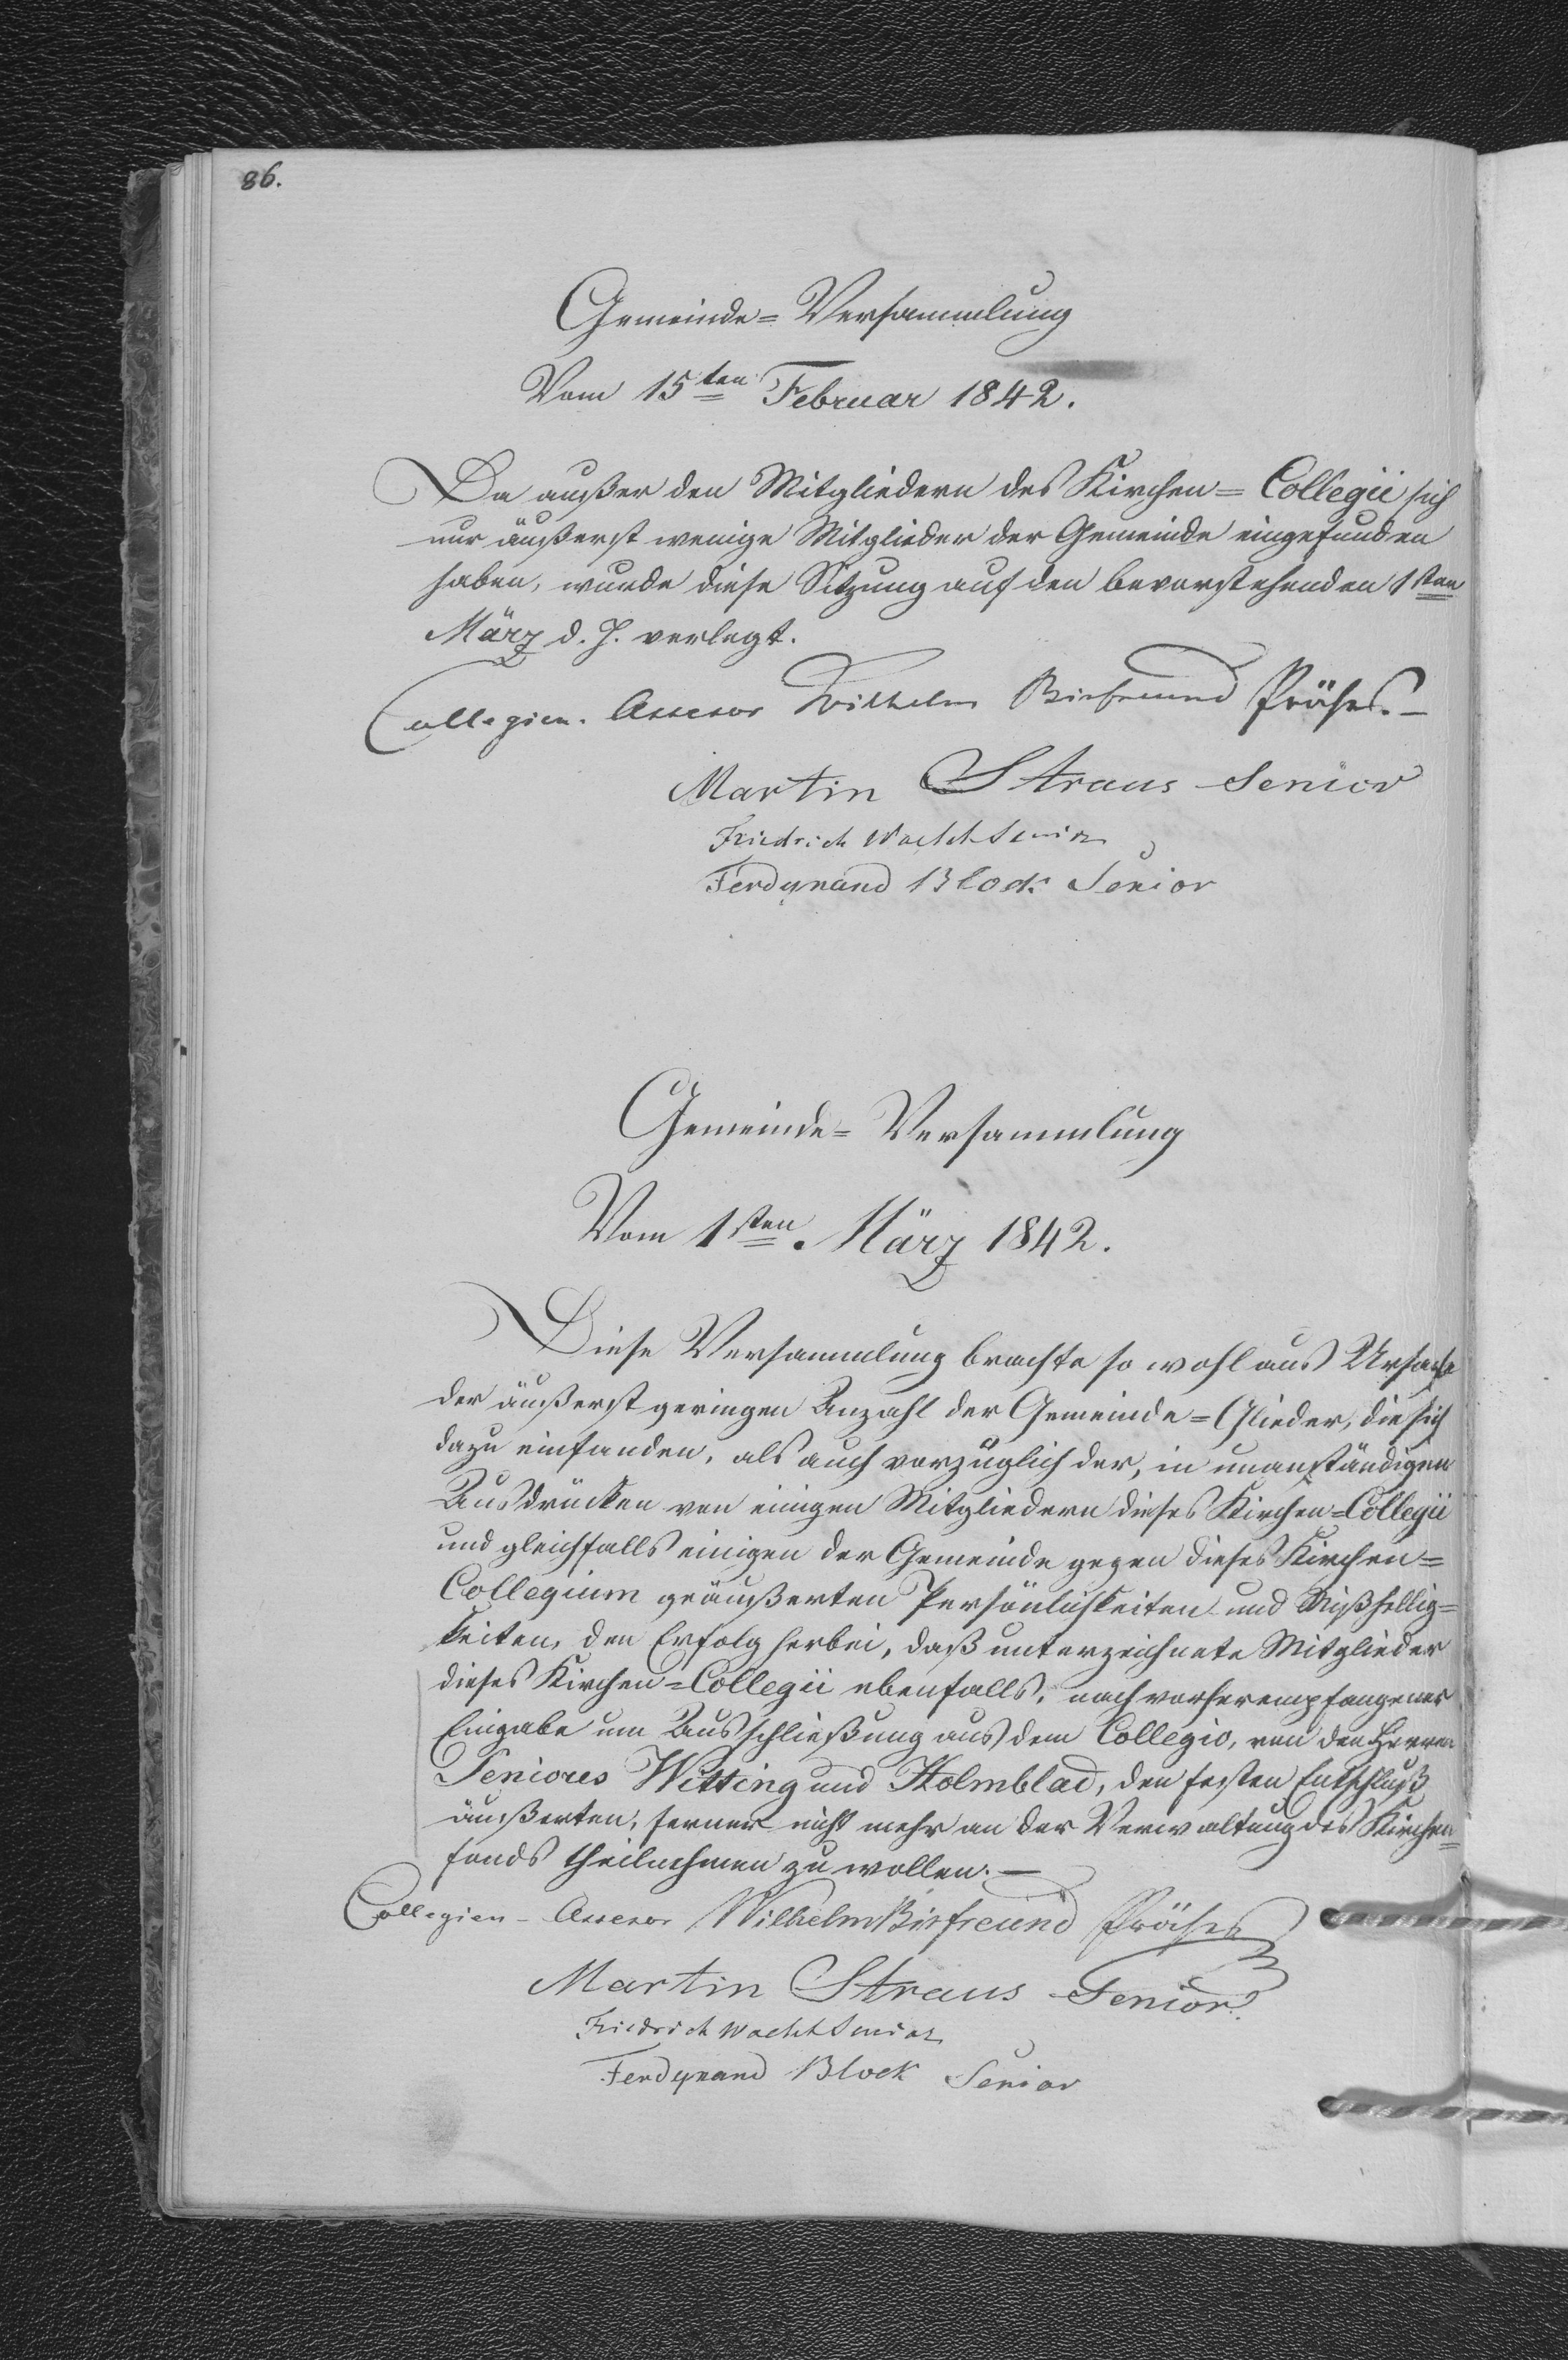 86.
Gemeinde=Versammlung
Vom 15ten Februar 1842.
Da außer den Mitgliedern des Kirchen=Collegii sich
nur äußerst wenige Mitglieder der Gemeinde eingefunden
haben, wurde diese Sitzung auf den bevorstehenden 1sten
März d. J. verlegt.
Collegien-Assesor Wilhelm Birfreund Präses.—
Martin Straus Senior
Friedrich Wacht Senior
Ferdynand Block Senior
Gemeinde=Versammlung
Vom 1sten März 1842.
Diese Versammlung brachte so wohl aus Ursache
der äußerst geringen Anzahl der Gemeinde=Glieder, die sich
dazu einfanden, als auch vorzüglich der, in unanständigen
Ausdrücken von einigen Mitgliedern dieses Kirchen=Collegii
und gleichfalls einigen der Gemeinde gegen dieses Kirchen=
Collegium geäußerten Persönlichkeiten und Mißhellig=
keiten, den Erfolg herbei, daß unterzeichnete Mitglieder
dieses Kirchen=Collegii ebenfalls, nach vorherempfangener
Eingabe um Ausschließung aus dem Collegio, von den Herren
Seniores Witting und Holmblad, den festen Entschluß
äußerten, ferner nicht mehr an der Verwaltung des Kirchen=
fonds theilnehmen zu wollen.—
Collegien-Assesor Wilhelm Birfreund Präses
Martin Straus Senior.
Friedrich Wacht Senior
Ferdynand Block Senior